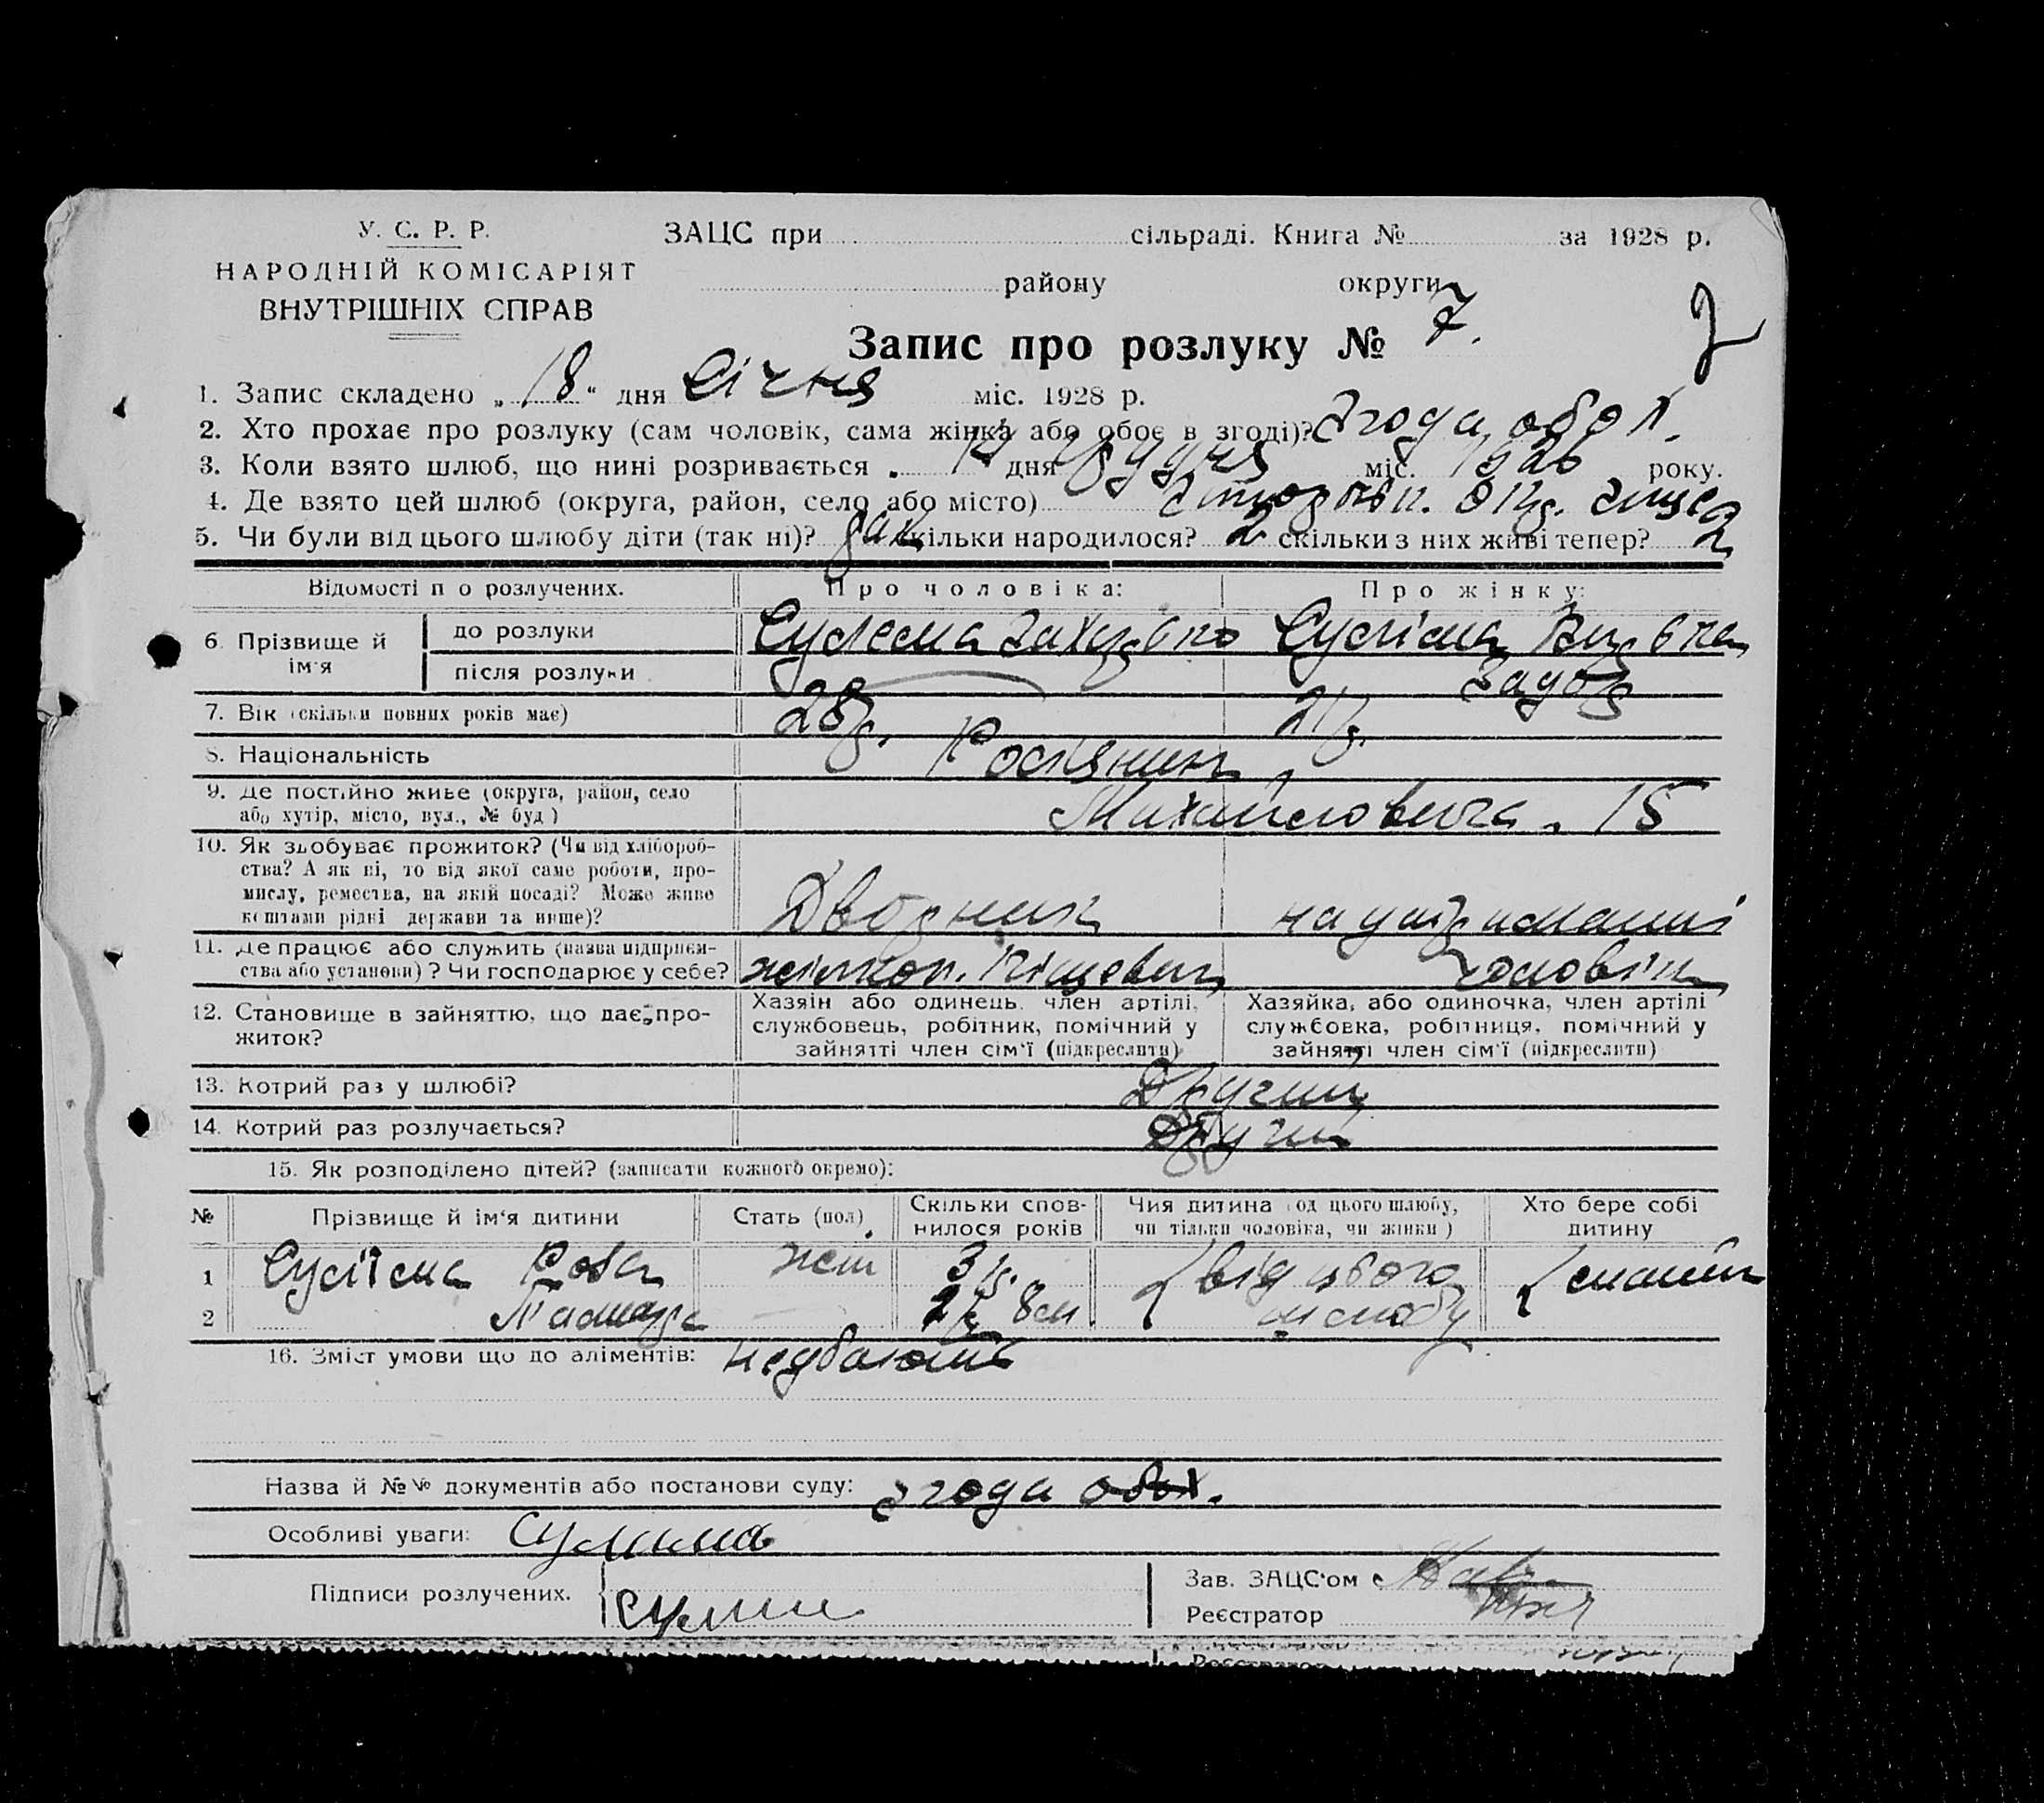 У. С. Р. Р.
НАРОДНІЙ КОМІСАРІЯТ
ВНУТРІШНІХ СПРАВ
ЗАЦС при сільраді. Книга № за 1928 р.
району округи
Запис про розлуку № 7.
2
1. Запис складено „ 18 “ дня Січня міс. 1928 р.
2. Хто прохає про розлуку (сам чоловік, сама жінка або обоє в згоді)? Згода обох.
3. Коли взято шлюб, що нині розривається дня Грудня міс. 1926 року.
4. Де взято цей шлюб (округа, район, село або місто)
5. Чи були від цього шлюбу діти (так ні)? так скільки народилося? 2 скільки з них живі тепер? 2
Відомості про розлучених. Про чоловіка: Про жінку:
6. Прізвище й ім'я до розлуки Сулема Сулима
після розлуки
7. Вік (скільки повних років має) 28р.
8. Національність Росіянин
9. Де постійно живе (округа, район, село або хутір, місто, вул., № буд) Михайловська. 15
10. Як здобуває прожиток? (Чи від хлібороб-
ства? А як ні, то від якої саме роботи, про-
мислу, ремества, на якій посаді? Може живе
коштами рідні держави та инше)? Дворник на утриманні
11. Де працює або служить (назва підприєм-
ства або установи)? Чи господарює у себе? жилкоп. чоловіка
12. Становище в зайняттю, що дає про-
житок?
Хазяін або одинець, член артілі,
службовець, робітник, помічний у
зайнятті член сім'ї (підкреслити)
Хазяйка, або одиночка, член артілі
службовка, робітниця, помічний у
зайнятті член сім'ї (підкреслити)
13. Котрий раз у шлюбі? Другий
14. Котрий раз розлучається? Другий
15. Як розподілено дітей? (записати кожного окремо):
№ Прізвище й ім'я дитини Стать (пол) Скільки спов-
нилося років Чия дитина (од цього шлюбу,
чи тільки чоловіка, чи жінки) Хто бере собі
дитину
1 Сулима жін 3 р. від цього
2 Тамара 8 м шлюбу
16. Зміст умови що до аліментів:
Назва й №№ документів або постанови суду: згода обох.
Особливі уваги: Сулима
Підписи розлучених. Сулим
Зав. ЗАЦС'ом
Реєстратор